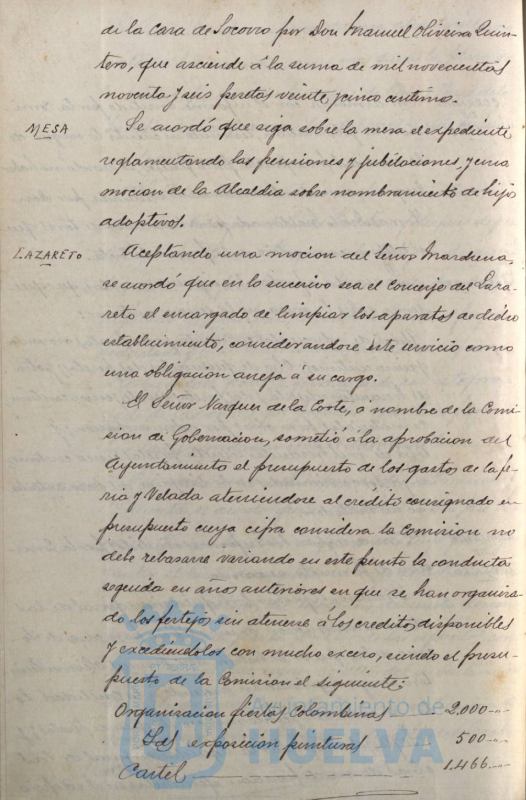 de la Casa de Socorro por Don Manuel Oliveira Quin-
tero, que asciende á la suma de mil novecientas
noventa y seis pesetas veinte y cinco centimos.
MESA
Se acordó que siga sobre la mesa el expediente
reglamentando las pensiones y jubilaciones, y una
mocion de la Alcaldia sobre nombramiento de hijos
adoptivos.
LAZARETO
Aceptando una mocion del Señor Marchena,
se acordó que en lo sucesivo sea el conserje del Laza-
reto el encargado de limpiar los aparatos de dicho
establecimiento, considerandose este servicio como
una obligacion aneja á su cargo.
El Señor Vazquez de la Corte, á nombre de la Comi-
sion de Gobernacion, sometió á la aprobacion del
Ayuntamiento el presupuesto de los gastos de la fe-
ria y Velada ateniendose al crédito consignado en
presupuesto cuya cifra considera la Comision no
debe rebasarse variando en este punto la conducta
seguida en años anteriores en que se han organiza-
do los festejos sin atenerse á los creditos disponibles
y excediendolos con mucho exceso, siendo el presu-
puesto de la Comision el siguiente:
Organizacion fiestas Colombinas 2.000
Id. exposicion pinturas 500
Cartel 1.466
Ayuntamiento de
HUELVA